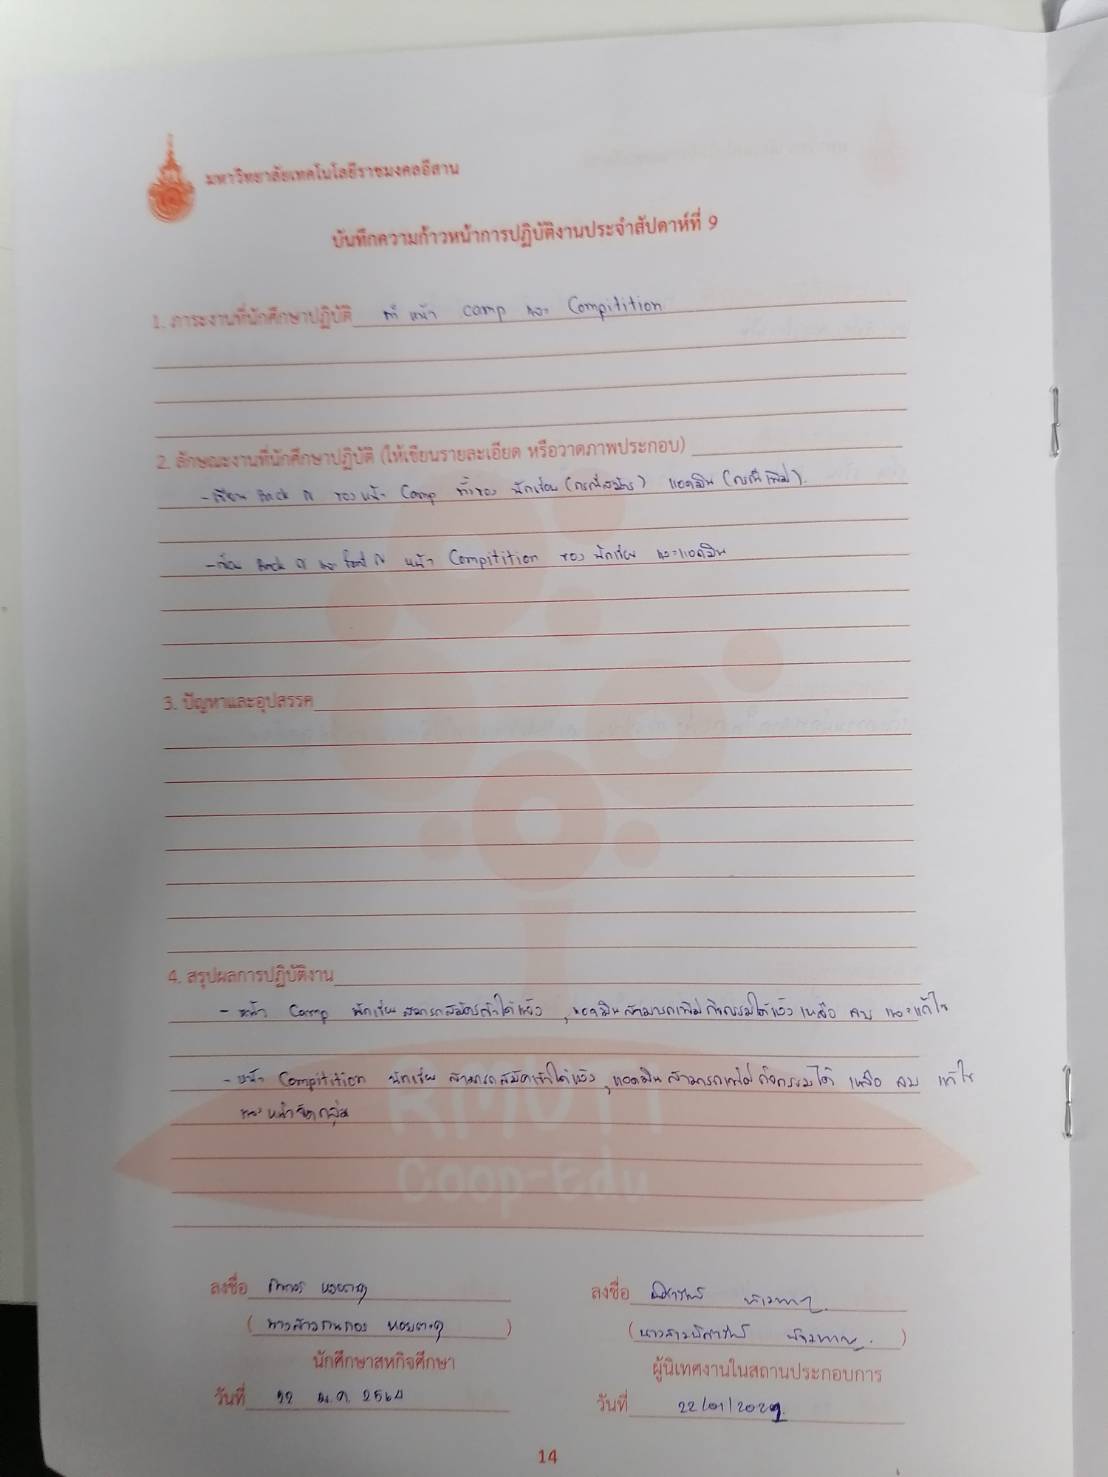 มหาวิทยาลัยเทคโนโลยีราชมงคลอีสาน
บันทึกความก้าวหน้าการปฏิบัติงานประจำสัปดาห์ที่ 9
1. ภาระงานที่นักศึกษาปฏิบัติ ทำ หน้า camp และ Compitition
2. ลักษณะงานที่นักศึกษาปฏิบัติ (ให้เขียนรายละเอียด หรือวาดภาพประกอบ)
- เขียน Back ของหน้า Camp ทั้งของ นักเรียน (กรณีสมัคร) แอดมิน (กรณีเพิ่ม).
- เขียน Back และ หน้า Compitition ของ นักเรียน และแอดมิน
3. ปัญหาและอุปสรรค
4. สรุปผลการปฏิบัติงาน
- หน้า Camp นักเรียน สามารถสมัครเข้าได้แล้ว , แอดมินสามารถเพิ่มกิจกรรมได้แล้ว เหลือ ลบ และแก้ไข
- หน้า Compitition นักเรียน สามารถสมัครเข้าได้แล้ว , แอดมินสามารถเพิ่มกิจกรรมได้ เหลือ ลบ แก้ไข
และหน้าจัดกลุ่ม
RMUTI
Coop-Edu
ลงชื่อ
ลงชื่อ
(นางสาว )
(นางสาว )
นักศึกษาสหกิจศึกษา
ผู้นิเทศงานในสถานประกอบการ
วันที่ 22 ม.ค. 2564
วันที่ 22/01/2021
14